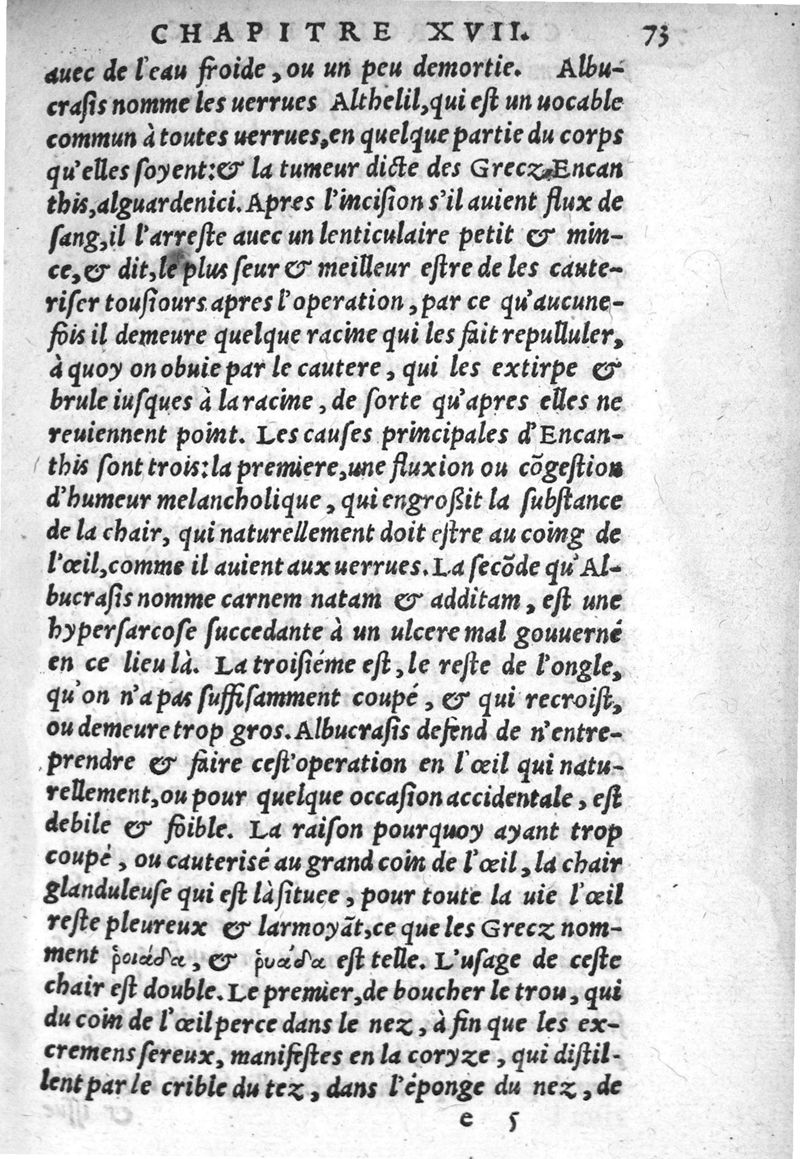 CHAPITRE XVII. 73
auec de l'eau froide, ou un peu demortie. Albu-
craſis nomme les uerrues Althelil, qui eſt un uocable
commun à toutes uerrues, en quelque partie du corps
qu'elles ſoyent: & la tumeur dicte des Grecz, Encan
this, alguardenici. Apres l'inciſion s'il auient flux de
ſang, il l'arreſte auec un lenticulaire petit & min-
ce, & dit, le plus ſeur & meilleur eſtre de les caute-
riſer touſiours apres l'operation, par ce qu'aucune-
fois il demeure quelque racine qui les fait repulluler,
à quoy on obuie par le cautere, qui les extirpe &
brule iuſques à la racine, de ſorte qu'apres elles ne
reuiennent point. Les cauſes principales d'Encan-
this ſont trois: la premiere, une fluxion ou cõgeſtion
d'humeur melancholique, qui engroßit la ſubſtance
de la chair, qui naturellement doit eſtre au coing de
l'œil, comme il auient aux uerrues. La ſecõde qu'Al-
bucraſis nomme carnem natam & additam, eſt une
hyperſarcoſe ſuccedante à un ulcere mal gouuerné
en ce lieu là. La troiſiéme eſt, le reſte de l'ongle,
qu'on n'a pas ſuffiſamment coupé, & qui recroiſt,
ou demeure trop gros. Albucraſis defend de n'entre-
prendre & faire ceſt'operation en l'œil qui natu-
rellement, ou pour quelque occaſion accidentale, eſt
debile & foible. La raiſon pourquoy ayant trop
coupé, ou cauteriſé au grand coin de l'œil, la chair
glanduleuſe qui eſt là ſituee, pour toute la uie l'œil
reſte pleureux & larmoyãt, ce que les Grecz nom-
ment ῥοιάδα, & ῥυάδα eſt telle. L'uſage de ceſte
chair eſt double. Le premier, de boucher le trou, qui
du coin de l'œil perce dans le nez, à fin que les ex-
cremens ſereux, manifeſtes en la coryze, qui diſtil-
lent par le crible du tez, dans l'éponge du nez, de
e 5